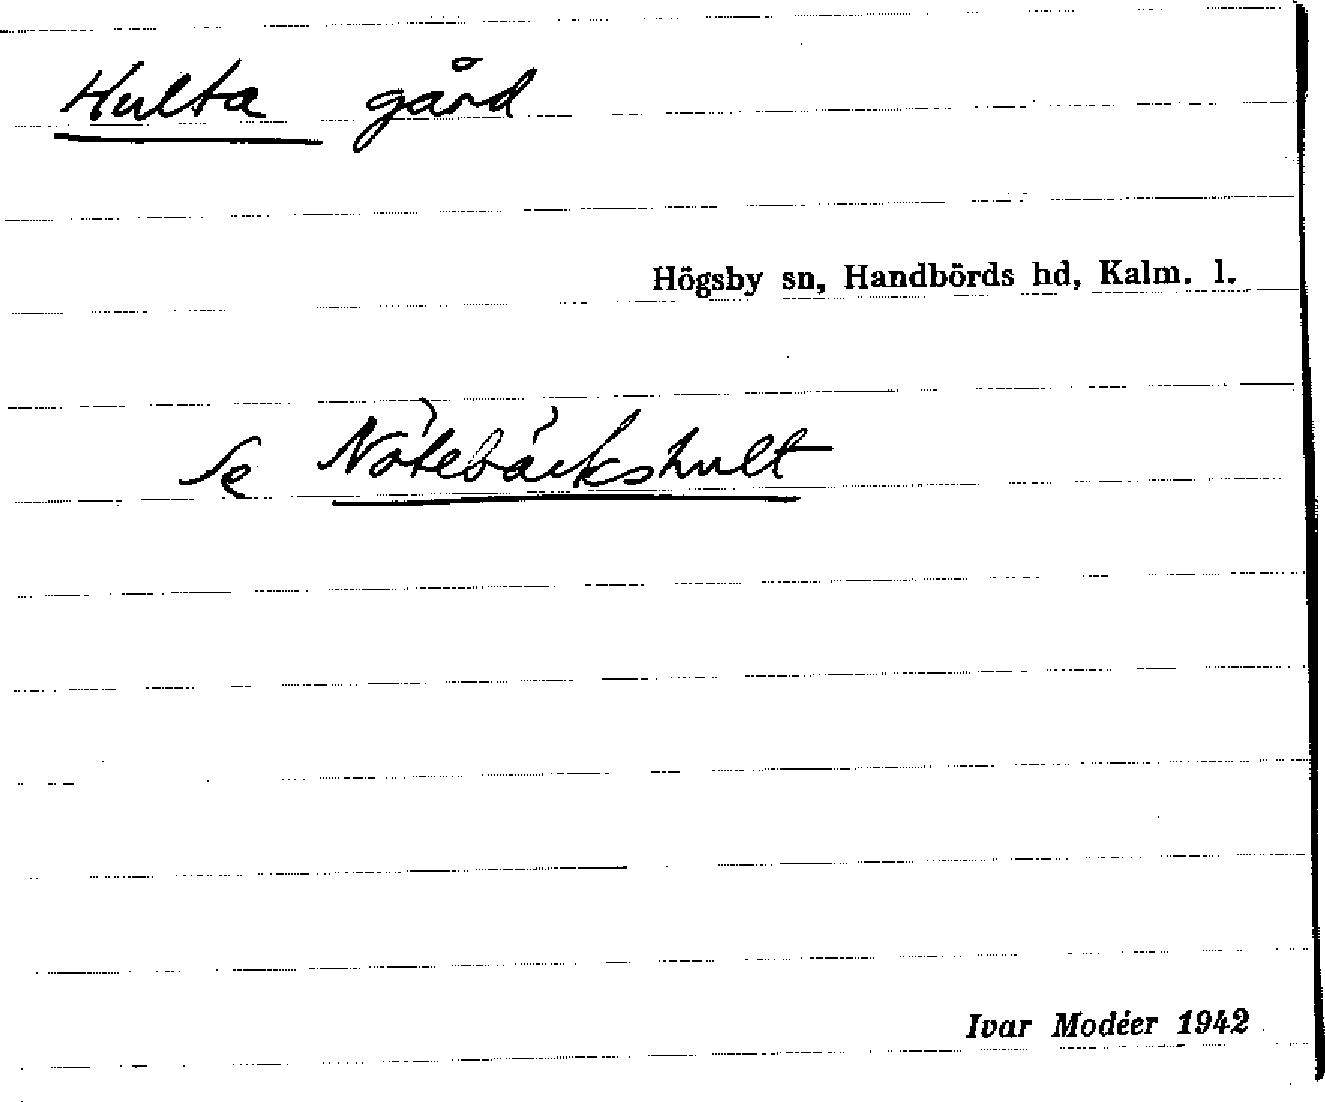 Hulta gård
Högsby sn, Handbörds hd, Kalm. l.
se Nötebäckshult
Ivar Modéer 1942